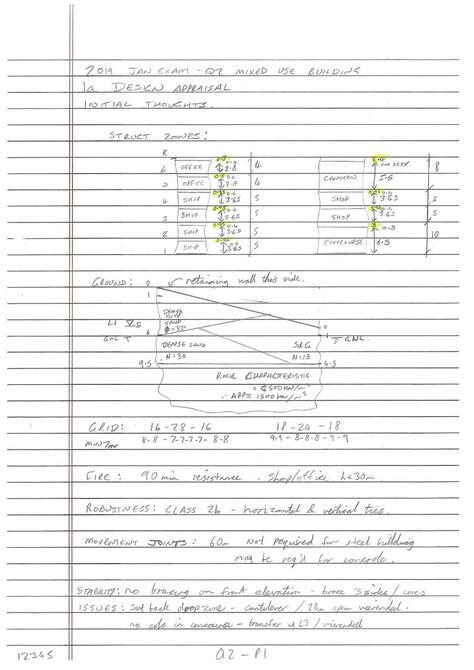 2019 JAN EXAM - Q2 MIXED USE BUILDING
1a DESIGN APPRAISAL
INITIAL THOUGHTS.
STRUCT ZONES:
R
6 OFFICE 2.8 4
5 OFFICE 4
4 SHOP 3.65 5
3 SHOP 3.65 5
2 SHOP 3.65 5
1 SHOP 3.65 5
CANTEEN 5.6 8
SHOP 3.65 5
SHOP 3.65 5
CONCOURSE 6.5 10
GROUND: 0 retaining wall this side.
1
DENSE
SAND
Φ=33°
L1 5
GWL 6
0
1 GWL
DENSE SAND
N=30
SdG
N=15
9.5
4.5
ROCK CHARACTERISTIC
= 4500kN/m²
∴ ABP ≈ 1500kN/m²
GRID: 16-28-16 18-24-18
MIN 7m 8-8-7-7-7-7-8-8 9-9-8-8-8-9-9
FIRE: 90 min resistance - shop/office h<30m.
ROBUSTNESS: CLASS 2b - horizontal & vertical ties.
MOVEMENT JOINTS: 60m Not required for steel building
may be req'd for concrete.
STABILITY: no bracing on front elevation - brace 3 sides / cores
ISSUES: Set back dropzone - cantilever / 28m span vierendeel.
no cols in concourse - transfer at L3 / vierendeel
12345
Q2-P1